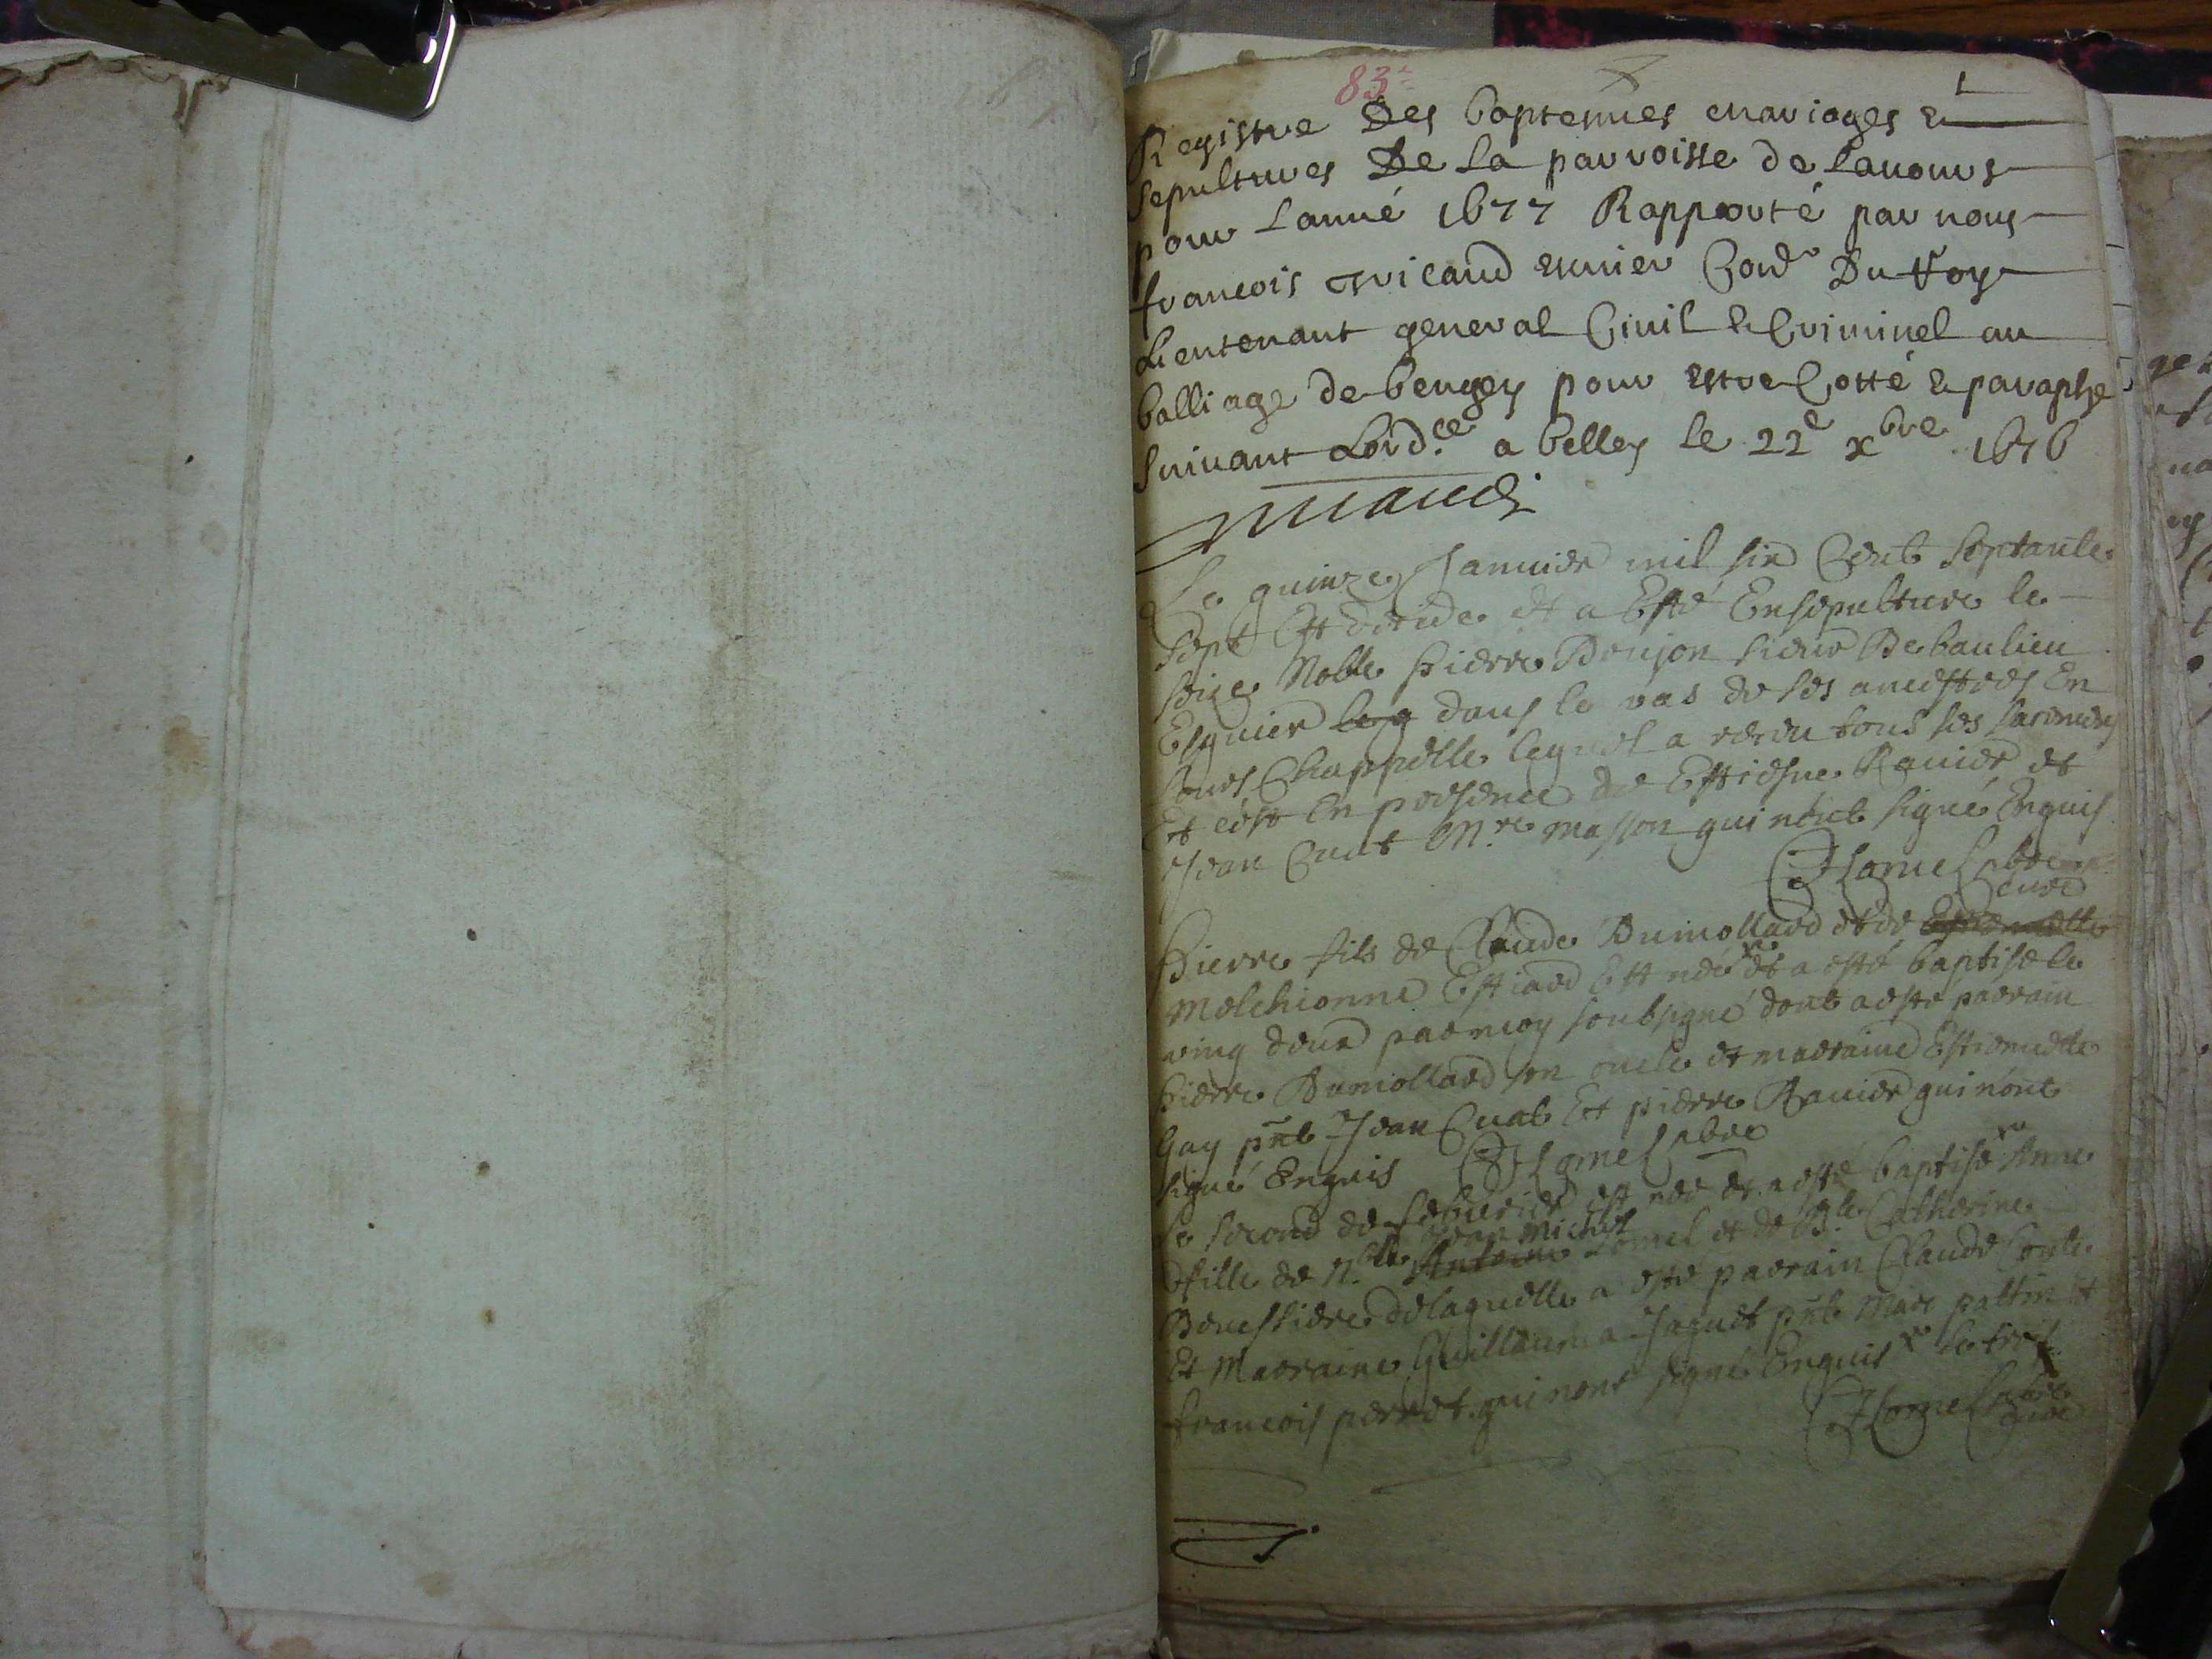 83
1
Registre Des baptesmes mariages &
sepultures De la parroisse de Lavours
pour Lanné 1677 Rapporté par nous
francois Tricaud escuier Con.er Du Roy
Lieutenant general Civil & Criminel au
balliage de beugey pour estre Cotté & paraphe
suivant Lord.ce a belley le 22e xbre 1676
Le quinze Januier mil six Cent Septante
sept Est decede et a Esté Ensepulture le
seize Noble pierre Boujon sieur De baulieu
Esquier dans le vas de ses ancestres En
leurs Chappelle lequel a receu tous ses sacremens
Et ce En presence de Estiesne Ravier et
Jean Cuat M.re masson qui nont signé Enquis
Lomel pbre
curé
Pierre fils de Claude Dumollard et de
Melchionne Estiard Est née et a esté baptise le
ving deux par moy soubsigné dont a esté parrain
pierre Dumollard son oncle et marraine Estiennette
Gay pnt Jean Cuat Et pierre Ravier qui nont
signé Enquis Lomel pbre
Le second de feburier est née et a esté baptisé Anne
fille de N.ble Jean Michel Lomel et de D.lle Catherine
de laquelle a esté parrain Claude
Et Marraine Guillauma Jaquet pnt Marc pattin Et
francois perret qui nont signé Enquis
Lomel pbre
curé